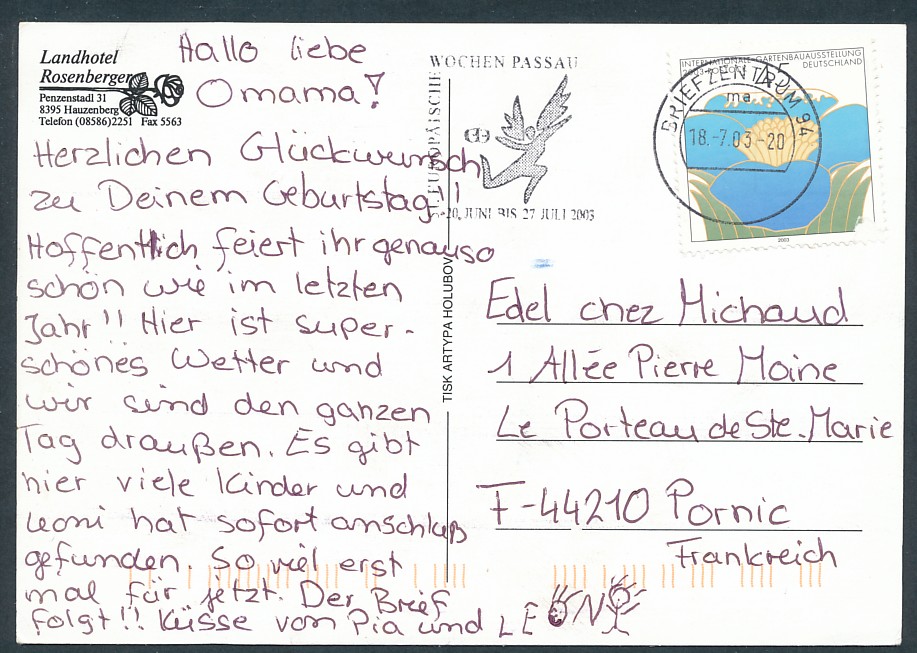 Landhotel
Rosenberger
Penzenstadl 31
8395 Hauzenberg
Telefon (08586)2251 Fax 5563
Hallo liebe
Omama!
Herzlichen Glückwunsch
zu Deinem Geburtstag!!
Hoffentlich feiert ihr genauso
schön wie im letzten
Jahr!! Hier ist super-
schönes Wetter und
wir sind den ganzen
Tag draußen. Es gibt
hier viele Kinder und
Leoni hat sofort anschluß
gefunden. So viel erst
mal für jetzt. Der Brief
folgt!! Küsse von Pia und LEONI
EUROPÄISCHE
WOCHEN PASSAU
20. JUNI BIS 27 JULI 2003
TISK ARTYPA HOLUBOV
BRIEFZENTRUM 94
ma
18.-7.03-20
INTERNATIONALE GARTENBAUAUSSTELLUNG
DEUTSCHLAND
2003
Edel chez Michaud
1 Allée Pierre Moine
Le Porteau de Ste.Marie
F-44210 Pornic
Frankreich